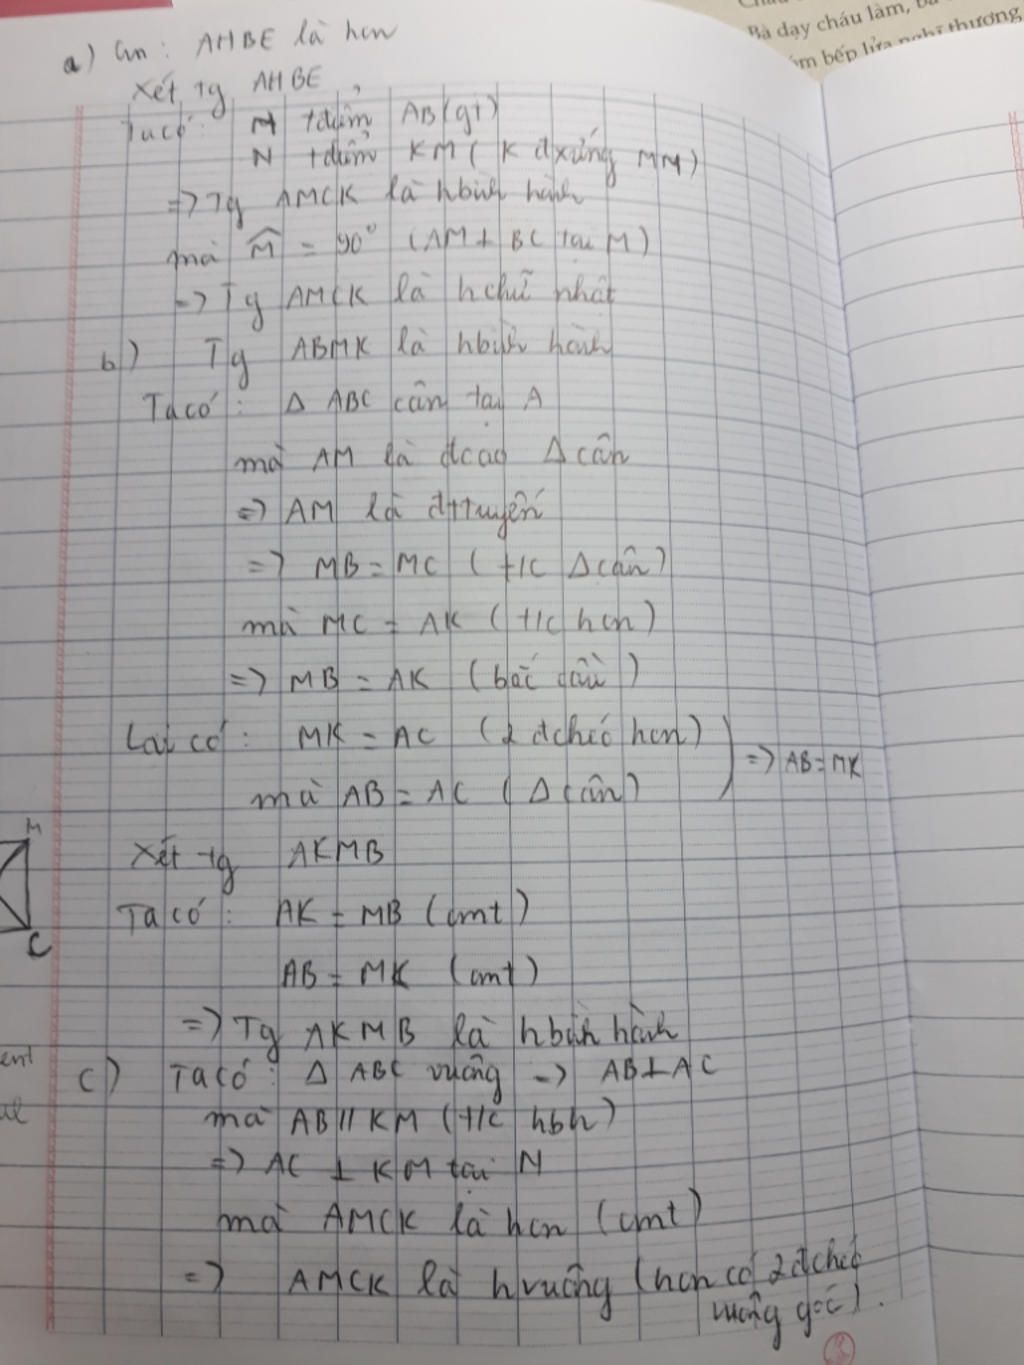 Bà dạy cháu làm, bà
óm bếp lửa nghĩ thương
a) Cm : AHBE là hcn
Xét tg AHBE
Ta có : M tđiểm AB (gt)
N tđiểm KM ( K đxứng M, M)
=> Tg AMCK là hbình hành
mà M̂ = 90° (AM ⊥ BC tại M)
=> Tg AMCK là hchữ nhật
b) Tg ABMK là hbình hành
Ta có : Δ ABC cân tại A
mà AM là đcao Δ cân
=> AM là đttuyến
=> MB = MC ( t/c Δ cân)
mà MC = AK ( t/c hcn)
=> MB = AK ( bắc cầu )
Lại có : MK = AC ( 2 đchéo hcn)
mà AB = AC ( Δ cân) => AB = MK
Xét tg AKMB
Ta có : AK = MB (cmt)
AB = MK (cmt)
=> Tg AKMB là hbình hành
c) Ta có : Δ ABC vuông -> AB ⊥ AC
mà AB // KM (t/c hbh)
=> AC ⊥ KM tại N
mà AMCK là hcn (cmt)
=> AMCK là hvuông (hcn có 2 đchéo
vuông góc) .
M
C
ent